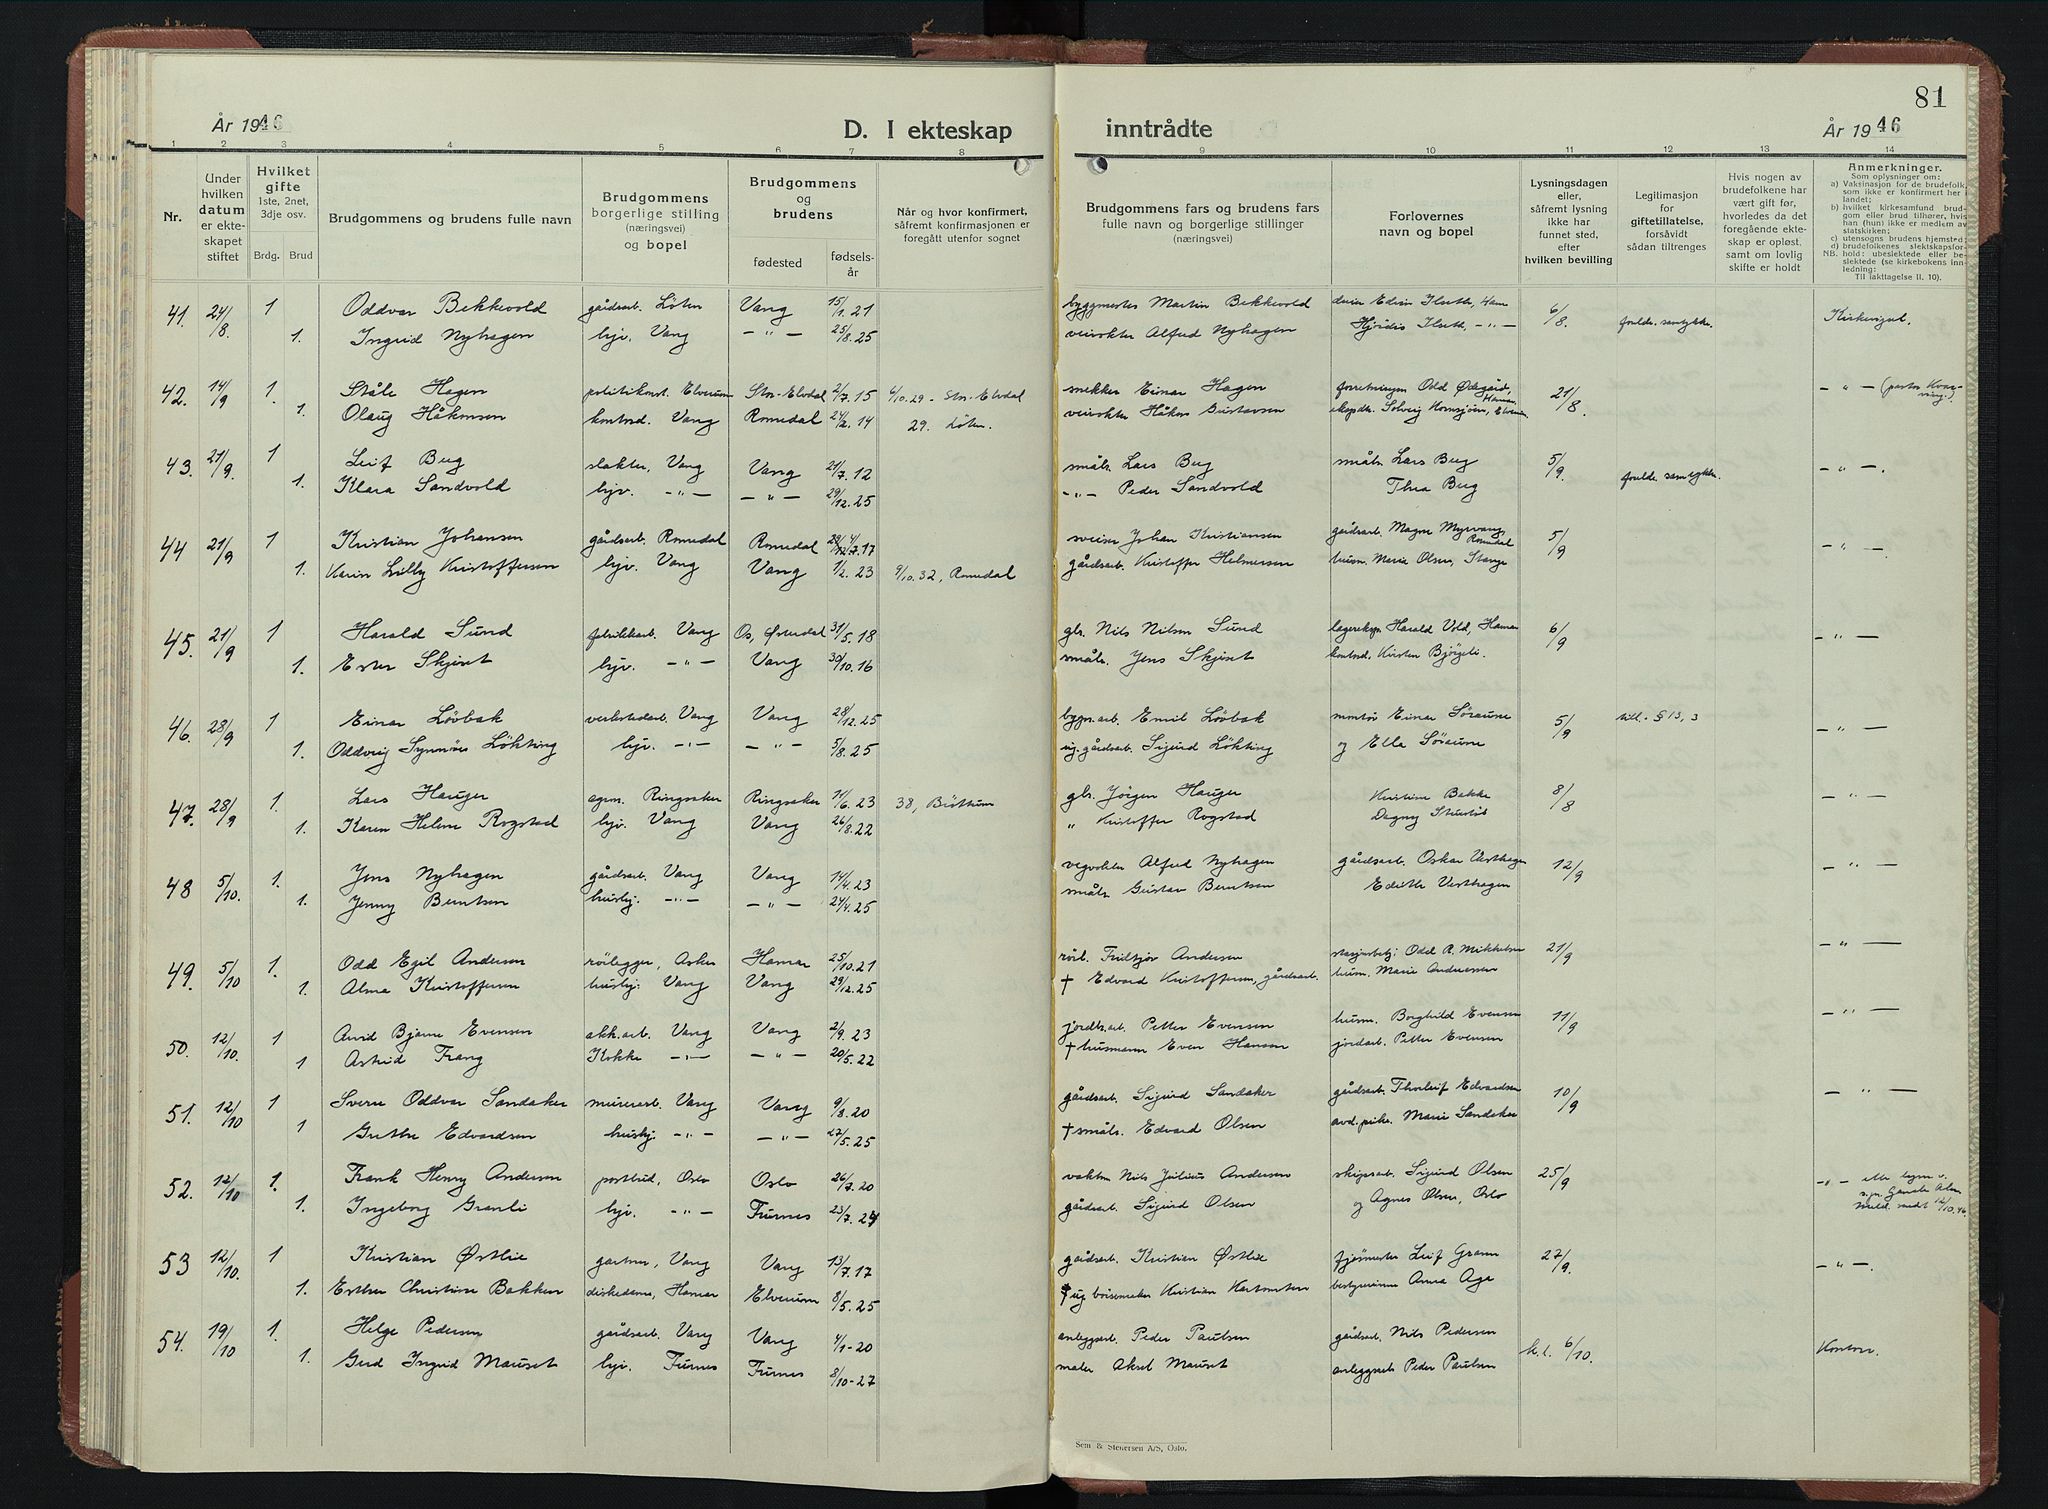 81
År 1946
D. I ekteskap
inntrådte
År 1946
1 2 3 4 5 6 7 8 9 10 11 12 13 14
Nr.
Under hvilken datum er ekteskapet stiftet
Hvilket gifte 1ste, 2net, 3dje osv.
Brdg. Brud
Brudgommens og brudens fulle navn
Brudgommens borgerlige stilling (næringsvei) og bopel
Brudgommens og brudens
fødested
fødselsår
Når og hvor konfirmert, såfremt konfirmasjonen er foregått utenfor sognet
Brudgommens fars og brudens fars fulle navn og borgerlige stillinger (næringsvei)
Forlovernes navn og bopel
Lysningsdagen eller, såfremt lysning ikke har funnet sted, efter hvilken bevilling
Legitimasjon for giftetillatelse, forsåvidt sådan tiltrenges
Hvis nogen av brudefolkene har vært gift før, hvorledes da det foregående ekteskap er opløst, samt om lovlig skifte er holdt
Anmerkninger.
Som oplysninger om:
a) Vaksinasjon for de brudefolk, som ikke er konfirmert her i landet;
b) hvilket kirkesamfund brudgom eller brud tilhører, hvis han (hun) ikke er medlem av statskirken;
c) utensogns brudens hjemsted;
d) brudefolkenes slektskapsforhold: ubeslektede eller beslektede (se kirkebokens innledning:
NB. Til iakttagelse II. 10).
41. 24/8. 1 Oddvar Bekkevold gårdsarb. Löten Vang 15/1.21 byggmester Martin Bekkevold Edvin Ilseth, Ham 6/8. forelds. samtykke. Kirkevigsl.
1. Ingrid Nyhagen hjv. Vang -"- 25/8.25 veivokter Alfred Nyhagen Hjördis Ilseth, -"-
42. 14/9 1. Ståle Hagen politikonst. Elverum Stor-Elvdal 2/7.15 4/10.29 - Stor-Elvdal snekker Einar Hagen Odd Ödegård, Hamar 21/8. -"- (pastor
1. Olaug Håkonsen kontord. Vang Romedal 24/2.14 29. Löten. veivokter Håkon Gustavsen ekspdtr. Solveig Elverum
43. 21/9. 1 Leif Berg slakter, Vang Vang 21/7.12 småbr. Lars Berg småbr. Lars Berg 5/9. forelds. samtykke. -"-.
1. Klara Sandvold hjv. -"- -"- 29/12.25 -"- Peder Sandvold Thea Berg
44 21/9 1 Kristian Johansen gårdsarb. Romedal Romedal 17 sveiser Johan Kristiansen gårdsarb. Magne Myrvang, Romedal 5/9 -"-.
1. Karin Lilly Kristoffersen hjv. Vang Vang 1/2.23 9/10.32, Romedal gårdsarb. Kristoffer Helmersen husm. Marie Olsen, Stange
45. 21/9 1 Harald Sund fabrikkarb. Vang Os, Østerdal 31/5.18 gbr. Nils Nilsen Sund lagereksp. Harald Vold, Hamar 6/9 -"-
1. Ester Skjeset hjv. -"- Vang 30/10.16 småbr. Jens Skjeset kontord. Kirsten Bjørgeli.
46. 28/9 1 Einar Lövbak verkstedarb. Vang Vang 28/12.25 bygn.arb. Emil Lövbak montör Einar Söraune 5/9 till. § 13, 3 -"-
1. Oddveig Synnöve Lökting hjv. -"- -"- 5/8.25 ug. gårdsarb. Sigurd Lökting og Ella Söraune
47. 28/9 1. Lars Hauger agrn. Ringsaker Ringsaker 11/6.23 38, Bröttum gbr. Jörgen Hauger Kristine Bakke 8/8 -"-
1. Karen Helene Rogstad hjv. Vang Vang 26/8.22 " Kristoffer Rogstad Dagny
48 5/10. 1. Jens Nyhagen gårdsarb. Vang Vang 14/4.23 vegvokter Alfred Nyhagen gårdsarb. Oskar Vesthagen 12/9 -"-
1. Jenny Berntsen husbj. -"- -"- 24/4.25 småbr. Gustav Berntsen Edith Vesthagen
49. 5/10 1. Odd Egil Andersen rörlegger, Asker Hamar 25/10.21 rörl. Fridtjov Andersen stasjonsbetj. Odd R. Mikkelsen 21/9 -"-
1. Alma Kristoffersen husbj. Vang Vang 29/12.25 † Edvard Kristoffersen, gårdsarb. husm. Marie Anderssen
50. 12/10. 1 Arvid Bjarne Evensen akk.arb. Vang Vang 2/9.23 jordbr.arb. Petter Evensen husm. Borghild Evensen 11/9 -"-
1 Astrid Frang Kokke -"- -"- 20/5.22 † husmann Even Hanson jordarb. Petter Evensen
51. 12/10 1 Sverre Oddvar Sandaker murerarb. Vang Vang 9/8.20 gårdsarb. Sigurd Sandaker gårdsarb. Thorleif Edvardsen 10/9 -"-
1 Grethe Edvardsen husbj. -"- -"- 27/5.25 † småbr. Edvard Olsen avd.pike. Marie Sandaker
52. 12/10 1. Frank Henry Andersen postbud, Oslo Oslo 26/7.20 vaktm. Nils Julius Andersen skipsarb. Sigurd Olsen 25/9 -"-
1. Ingeborg Granli hjv. -"- Furnes 23/7.24 gårdsarb. Sigurd Olsen og Agnes Olsen, Oslo
53 12/10. 1 Kristian Östlie gartner, Vang Vang 13/7.17 gårdsarb. Kristian Östlie fjösmester Leif Gram 27/9. -"-.
1. Esther Christine Bakken diskedame, Hamar Elverum 8/5.25 † ug börsemaker Kristian bestyrerinne Anna Aga
54. 19/10 1. Helge Pedersen gårdsarb. Vang Vang 4/1-20 anleggsarb. Peder Paulsen gårdsarb. Nils Pedersen k.l. 6/10. Kontor.
1. Gerd Ingrid Mauset hjv. Furnes Furnes 8/10-27 maler Aksel Mauset anleggsarb. Peder Paulsen
Sem & Stenersen A/S, Oslo.